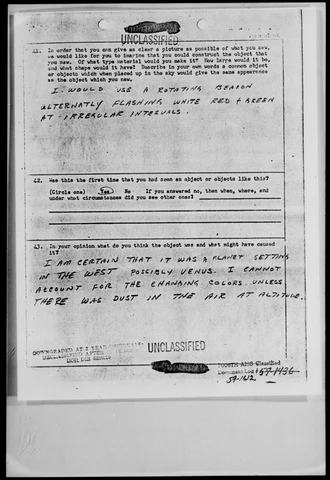 UNCLASSIFIED
41. In order that you can give as clear a picture as possible of what you saw,
we would like for you to imagine that you could construct the object that
you saw. Of what type material would you make it? How large would it be,
and what shape would it have? Describe in your own words a common object
or objects which when placed up in the sky would give the same appearance
as the object which you saw.
I WOULD USE A ROTATING BEACON
ALTERNATLY FLASHING WHITE RED & GREEN
AT IRREGULAR INTERVALS.
42. Was this the first time that you had seen an object or objects like this?
(Circle one) Yes No If you answered no, then when, where, and
under what circumstances did you see other ones?
43. In your opinion what do you think the object was and what might have caused
it?
I AM CERTAIN THAT IT WAS A PLANET SETTING
IN THE WEST POSSIBLY VENUS. I CANNOT
ACCOUNT FOR THE CHANGING COLORS UNLESS
THERE WAS DUST IN THE AIR AT ALTITUDE.
UNCLASSIFIED
DOWNGRADED AT 3 YEAR INTERVALS
DECLASSIFIED AFTER
DOD DIR
Classified
Document